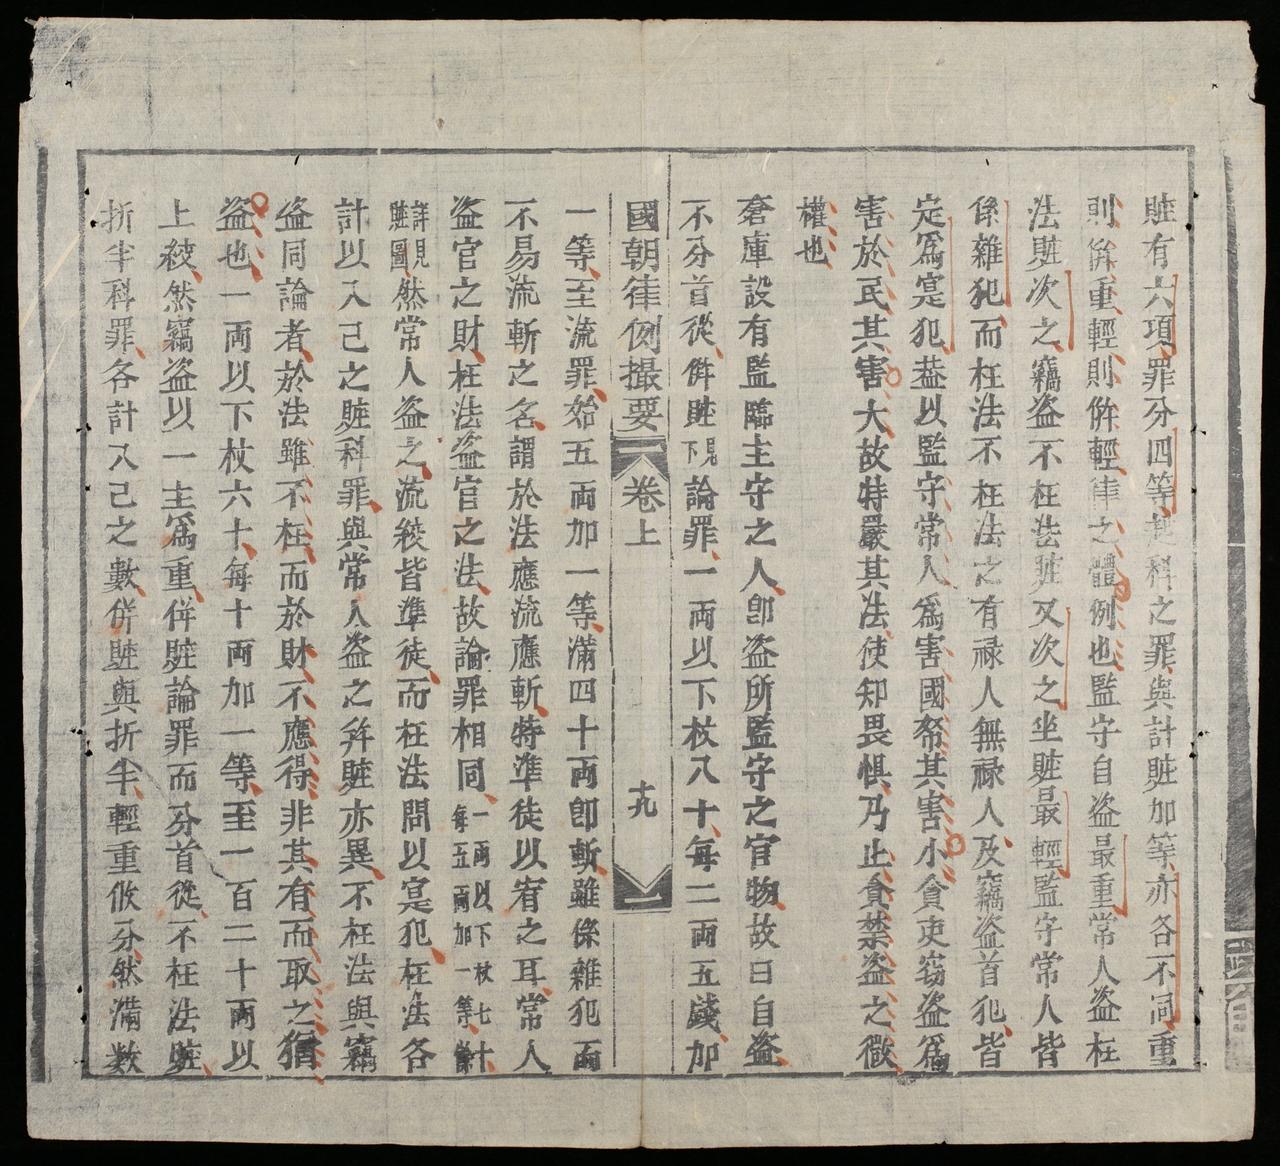 賍有六項罪分四等起科之罪與計賍加等亦各不同重
則併重輕則併輕律之體例也監守自盗最重常人盗枉
法賍次之竊盗不枉法賍又次之坐賍最輕監守常人皆
係雜犯而枉法不枉法之有禄人無禄人及竊盗首犯皆
定爲寔犯葢以監守常人爲害國帑其害小貪吏窃盗爲
害於民其害大故特嚴其法使知畏惧乃止貪禁盗之微
權也
倉庫設有監臨主守之人卽盗所監守之官物故曰自盗
不分首從併賍見下論罪一両以下杖八十每二両五錢加
國朝律例撮要 卷上 十九
一等至流罪始五両加一等滿四十両卽斬雖係雜犯而
不易流斬之名謂於法應流應斬特準徒以宥之耳常人
盗官之財枉法盗官之法故論罪相同一両以下杖七十每五両加一等
詳見賍圖然常人盗之流絞皆準徒而枉法問以寔犯枉法各
計以入己之賍科罪與常人盗之并賍亦異不枉法與竊
盗同論者於法雖不枉而於財不應得非其有而取之猶
盗也一両以下杖六十每十両加一等至一百二十両以
上絞然竊盗以一主爲重併賍論罪而分首從不枉法賍
折半科罪各計入己之數併賍與折半輕重攸分然滿數